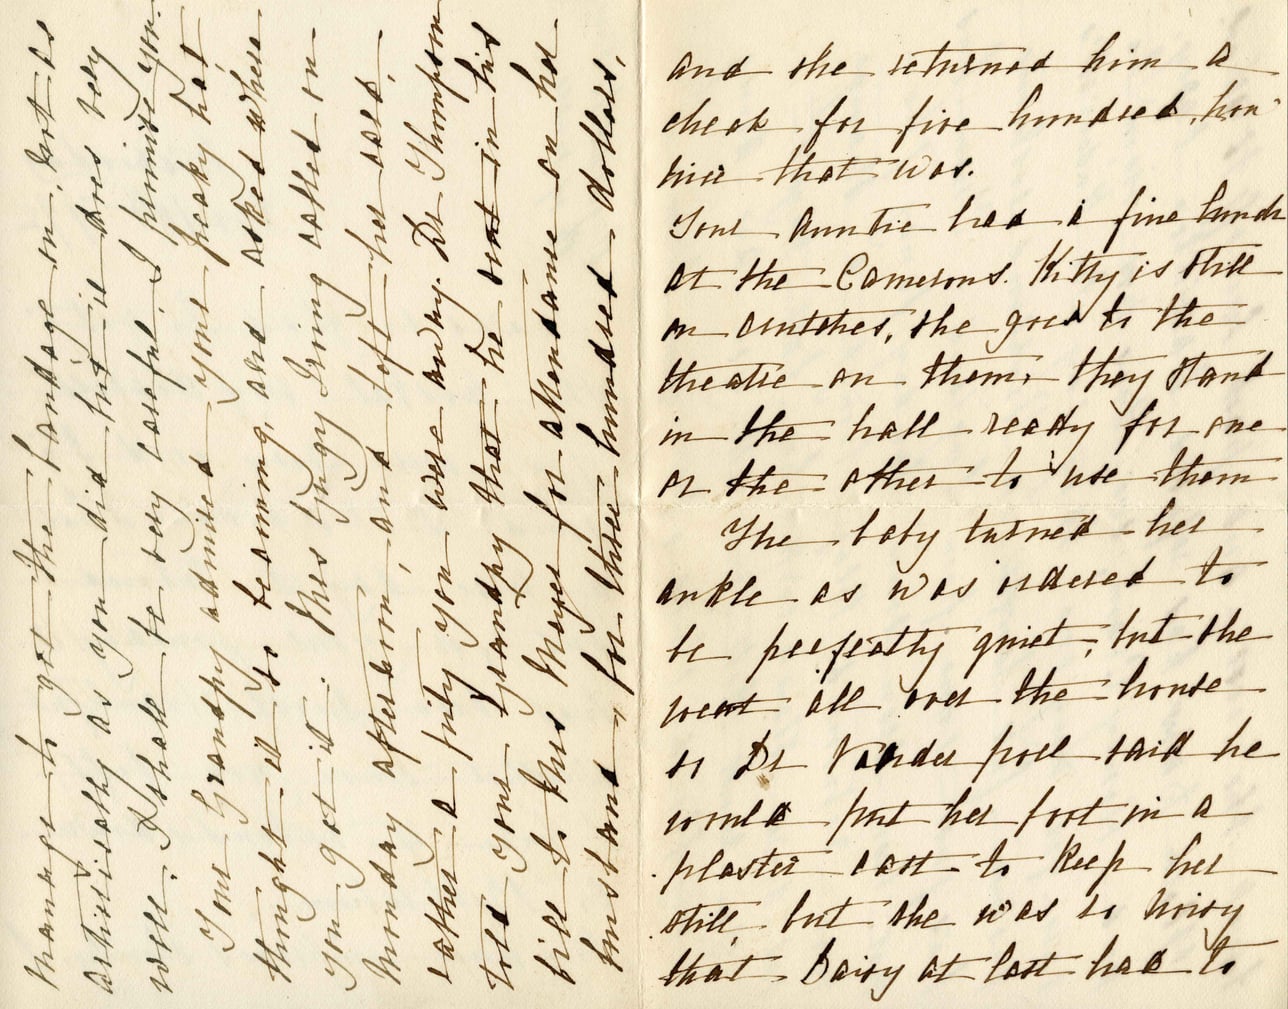 manage to get the bandage on, not as
artistically as you did but it does very
well. I shall be very careful. I promise you.
Your Grandpy admired your peaky hat,
thought it so becoming, and asked where
you got it. Mrs Gugy Irving called on
Monday afternoon, and left her card,
rather a pity you were away. Dr Thompson
told your Grandpy that he sent in his
bill to Mrs Mayer for attendance on her
husband, for three hundred dollars,
and she returned him a
check for five hundred, how
nice that was.
Your Auntie had a fine lunch
at the Camerons. Kitty is still
on crutches, she goes to the
theatre on them, they stand
in the hall ready for one
or the other to use them
The baby turned her
ankle as was ordered to
be perfectly quiet, but she
went all over the house
so Dr Vander poel said he
would put her foot in a
plaster cast to keep her
still, but she was so noisy
that Daisy at last had to